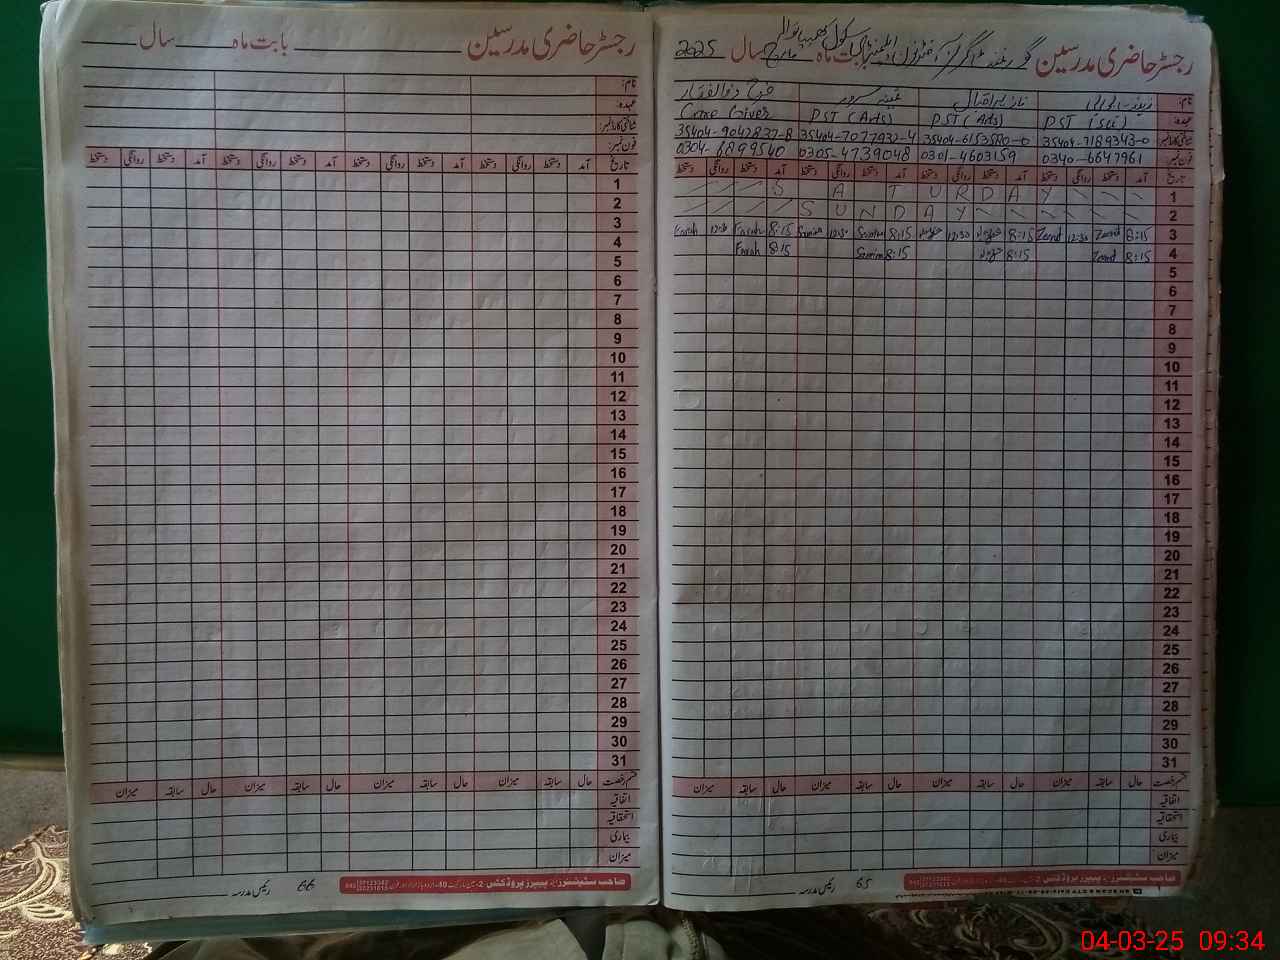 رجسٹر حاضری مدرسین بابت ماہ سال
نام:
عہدہ:
شناختی کارڈ نمبر:
فون نمبر:
تاریخ آمد دستخط روانگی دستخط آمد دستخط روانگی دستخط آمد دستخط روانگی دستخط آمد دستخط روانگی دستخط
1
2
3
4
5
6
7
8
9
10
11
12
13
14
15
16
17
18
19
20
21
22
23
24
25
26
27
28
29
30
31
قسم رخصت حال سابقہ میزان حال سابقہ میزان حال سابقہ میزان حال سابقہ میزان
اتفاقیہ
استحقاقیہ
بیماری
میزان
صاحب سٹیشنرز اینڈ پیپرز پروڈکٹس
رئیس مدرسہ 66
رجسٹر حاضری مدرسین بابت ماہ مارچ سال 2025
نام: نازیہ اقبال ثمینہ سرور فرح ذوالفقار
عہدہ: PST (Sci) PST (Arts) PST (Arts) Care Giver
شناختی کارڈ نمبر: 35404-7189343-0 35404-6153580-0 35404-7077932-4 35404-9042837-8
فون نمبر: 0340-6647961 0301-4603159 0305-4739048 0304-6899540
تاریخ آمد دستخط روانگی دستخط آمد دستخط روانگی دستخط آمد دستخط روانگی دستخط آمد دستخط روانگی دستخط
1 SATURDAY
2 SUNDAY
3 8:15 12:30 8:15 12:30 8:15 12:30 8:15 Farah 12:30 Farah
4 8:15 8:15 8:15 8:15 Farah
5
6
7
8
9
10
11
12
13
14
15
16
17
18
19
20
21
22
23
24
25
26
27
28
29
30
31
قسم رخصت حال سابقہ میزان حال سابقہ میزان حال سابقہ میزان حال سابقہ میزان
اتفاقیہ
استحقاقیہ
بیماری
میزان
صاحب سٹیشنرز اینڈ پیپرز پروڈکٹس
رئیس مدرسہ 65
04-03-25 09:34